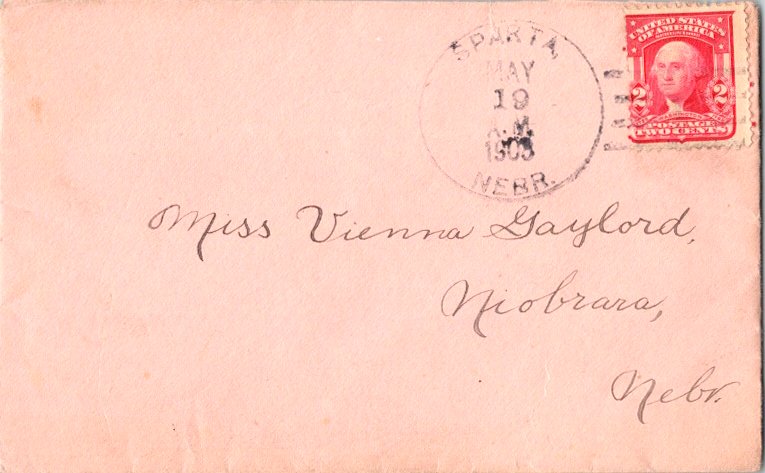 SPARTA,
MAY
19
A.M.
NEBR.
UNITED STATES
OF AMERICA
2 2
POSTAGE
TWO CENTS
Miss Vienna Gaylord,
Niobrara,
Nebr.